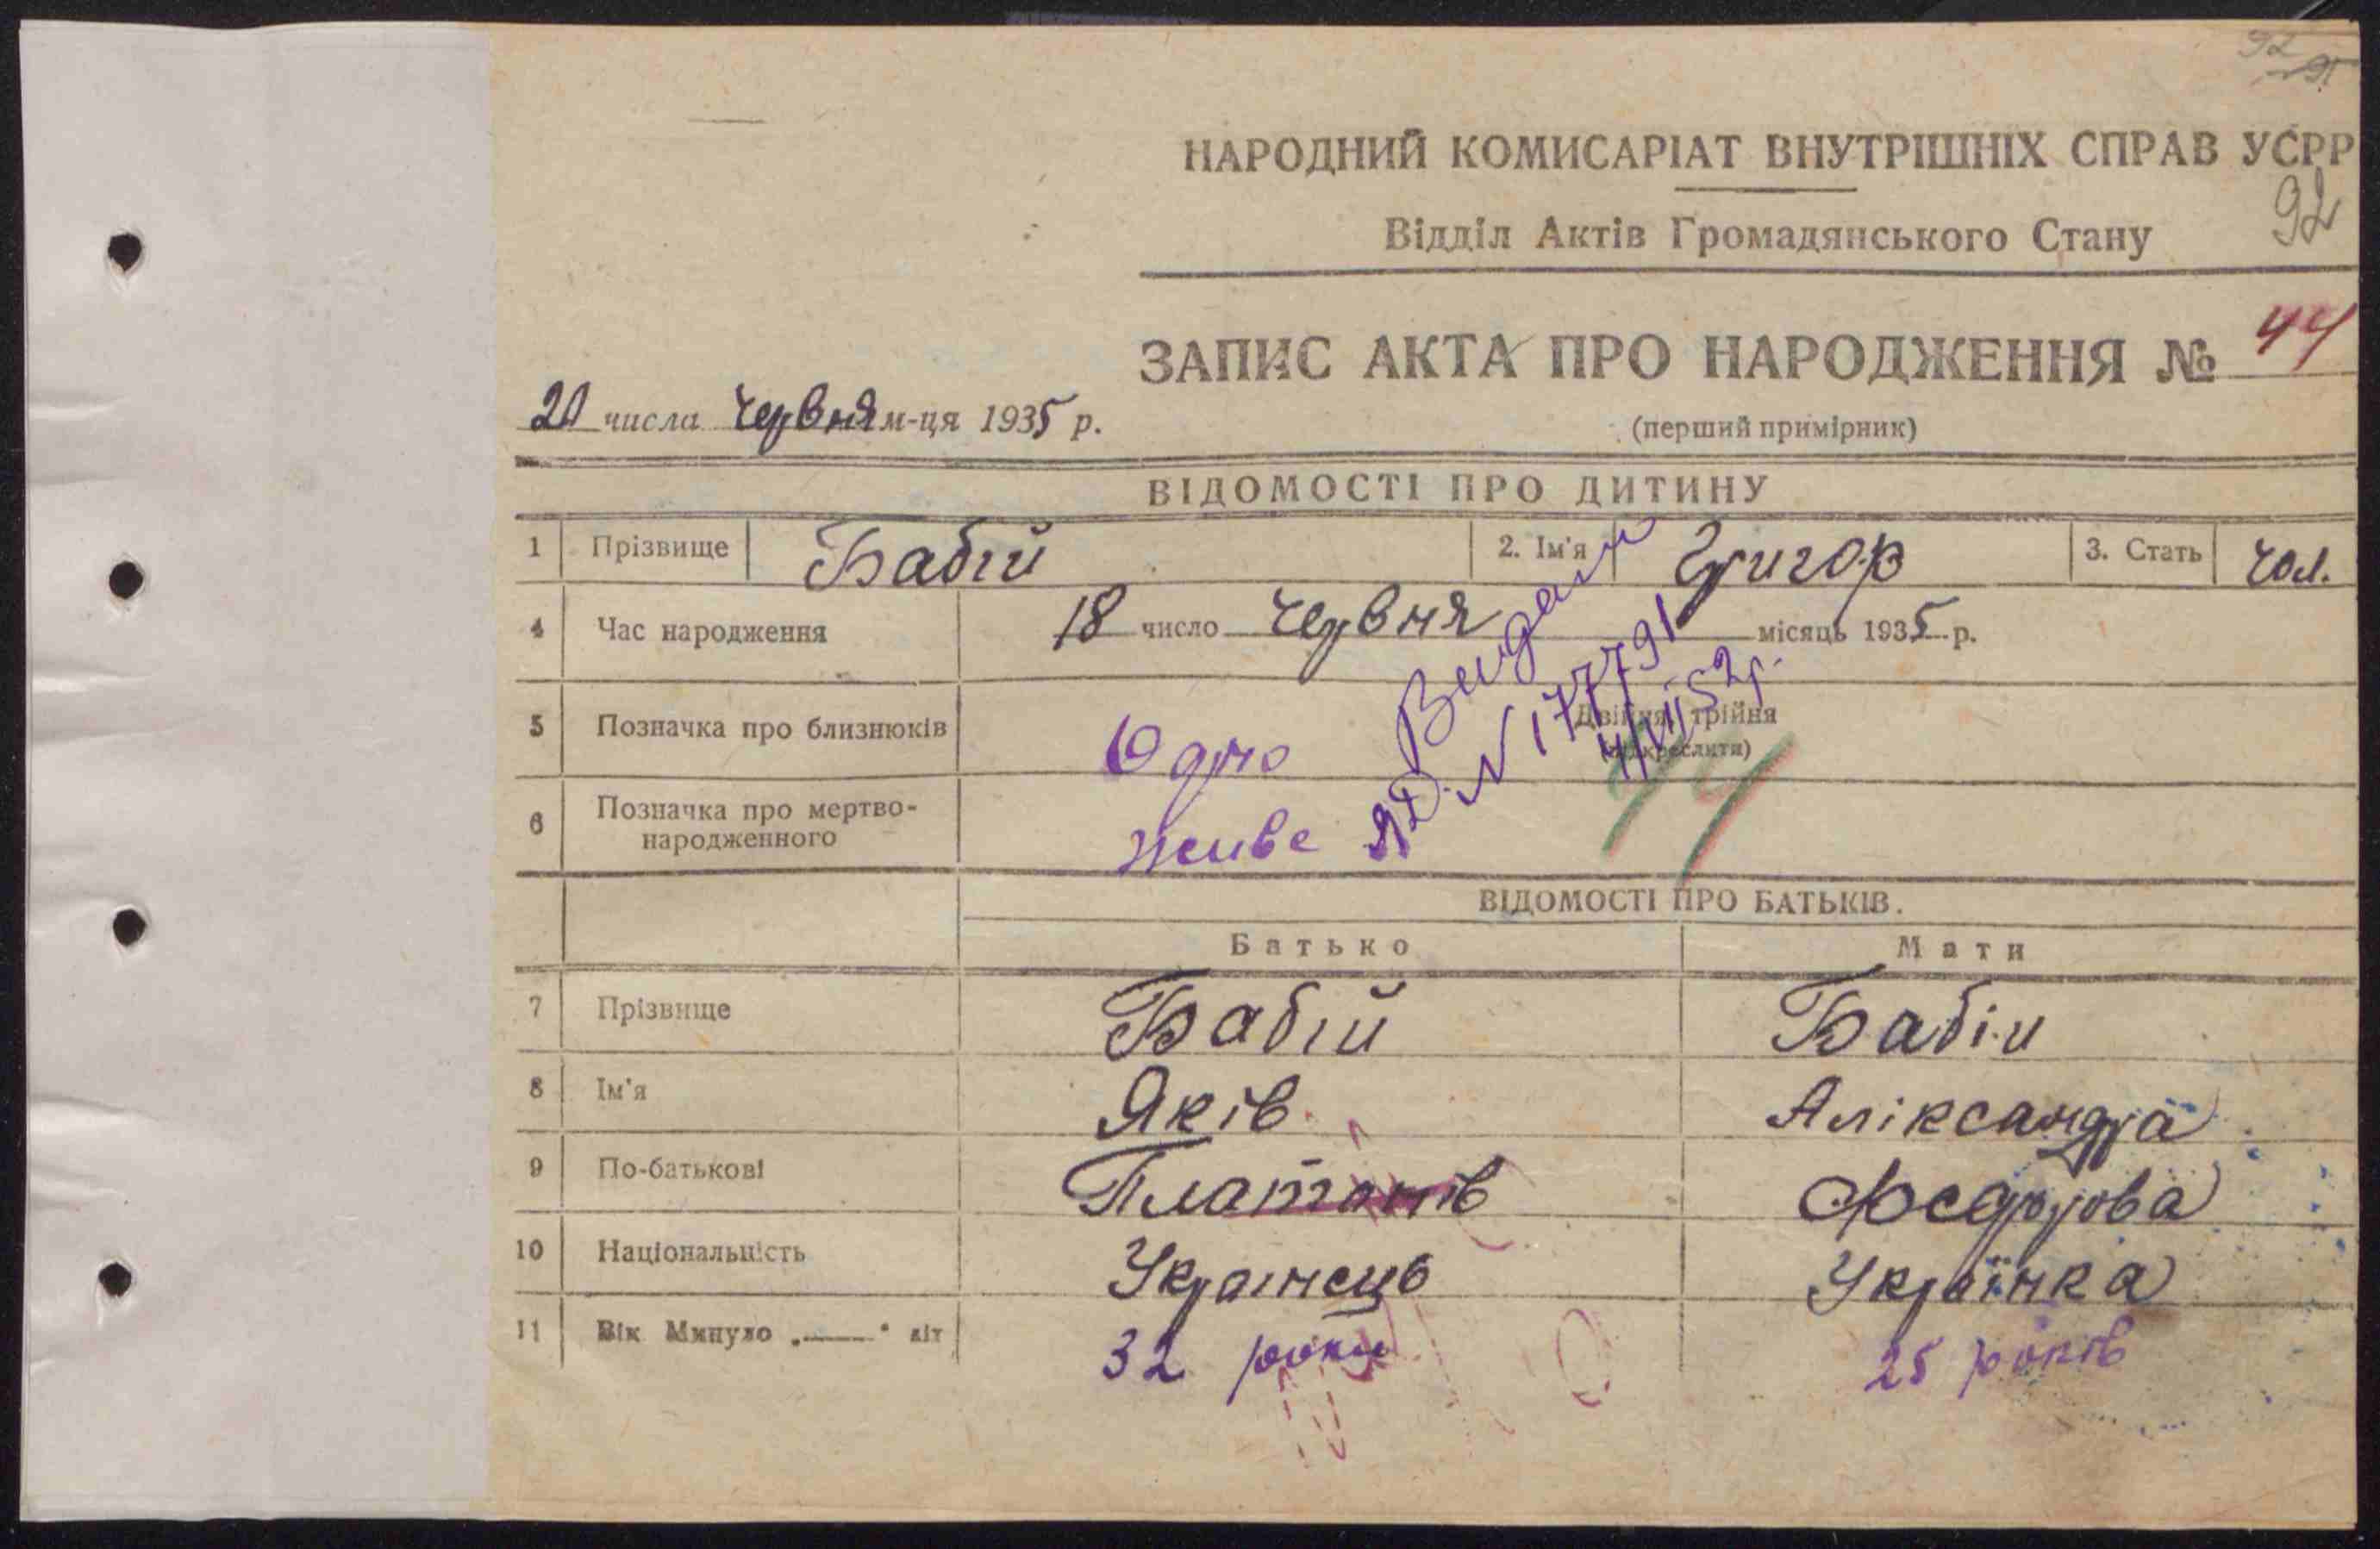 92
91
НАРОДНИЙ КОМИСАРІАТ ВНУТРІШНІХ СПРАВ УСРР
92
Відділ Актів Громадянського Стану
ЗАПИС АКТА ПРО НАРОДЖЕННЯ № 44
20 числа червня м-ця 1935 р.
(перший примірник)
ВІДОМОСТІ ПРО ДИТИНУ
1 Прізвище Бабій 2. Ім'я Григор 3. Стать чол.
4 Час народження 18 число червня місяць 1935 р.
5 Позначка про близнюків Одно Двійня, трійня
(підкреслити)
6 Позначка про мертво-
народженного Живе
N 177791
44
ВІДОМОСТІ ПРО БАТЬКІВ.
Батько Мати
7 Прізвище Бабій Бабіи
8 Ім'я Яків Аліксандра
9 По-батькові Платонів Федорова
10 Національність Українець Українка
11 Вік Минуло „——“ літ 32 роки 25 років